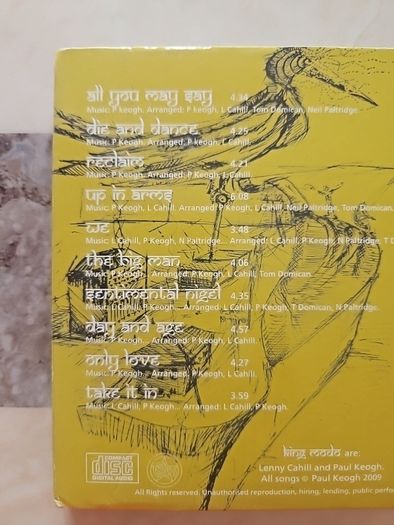 all you may say 4.34
Music: P keogh. Arranged: P keogh, L Cahill, Tom Domican, Neil Paltridge.
die and dance 4.25
Music: P Keogh. Arranged: P Keogh, L Cahill.
reclaim 4.21
Music: P Keogh. Arranged: P Keogh, L Cahill.
up in arms 6.08
Music: P Keogh, L Cahill. Arranged: P Keogh, L Cahill, Neil Paltridge, Tom Domican,
we 3.48
Music: L Cahill, P Keogh, N Paltridge... Arranged: L Cahill, P Keogh, N Paltridge, T D
the big man 4.06
Music: P Keogh... Arranged: P Keogh, L Cahill, Tom Domican.
sentimental nigel 4.35
Music: L Cahill, P Keogh... Arranged: L Cahill, P Keogh, T Domican, N Paltridge.
day and age 4.57
Music: P Keogh... Arranged: P Keogh, L Cahill.
only love 4.27
Music: P Keogh... Arranged: P Keogh, L Cahill.
take it in 3.59
Music: L Cahill, P Keogh... Arranged: L Cahill, P Keogh.
king modo are:
Lenny Cahill and Paul Keogh.
All songs © Paul Keogh 2009
COMPACT
disc
DIGITAL AUDIO
All Rights reserved. Unauthorised reproduction, hiring, lending, public perfor